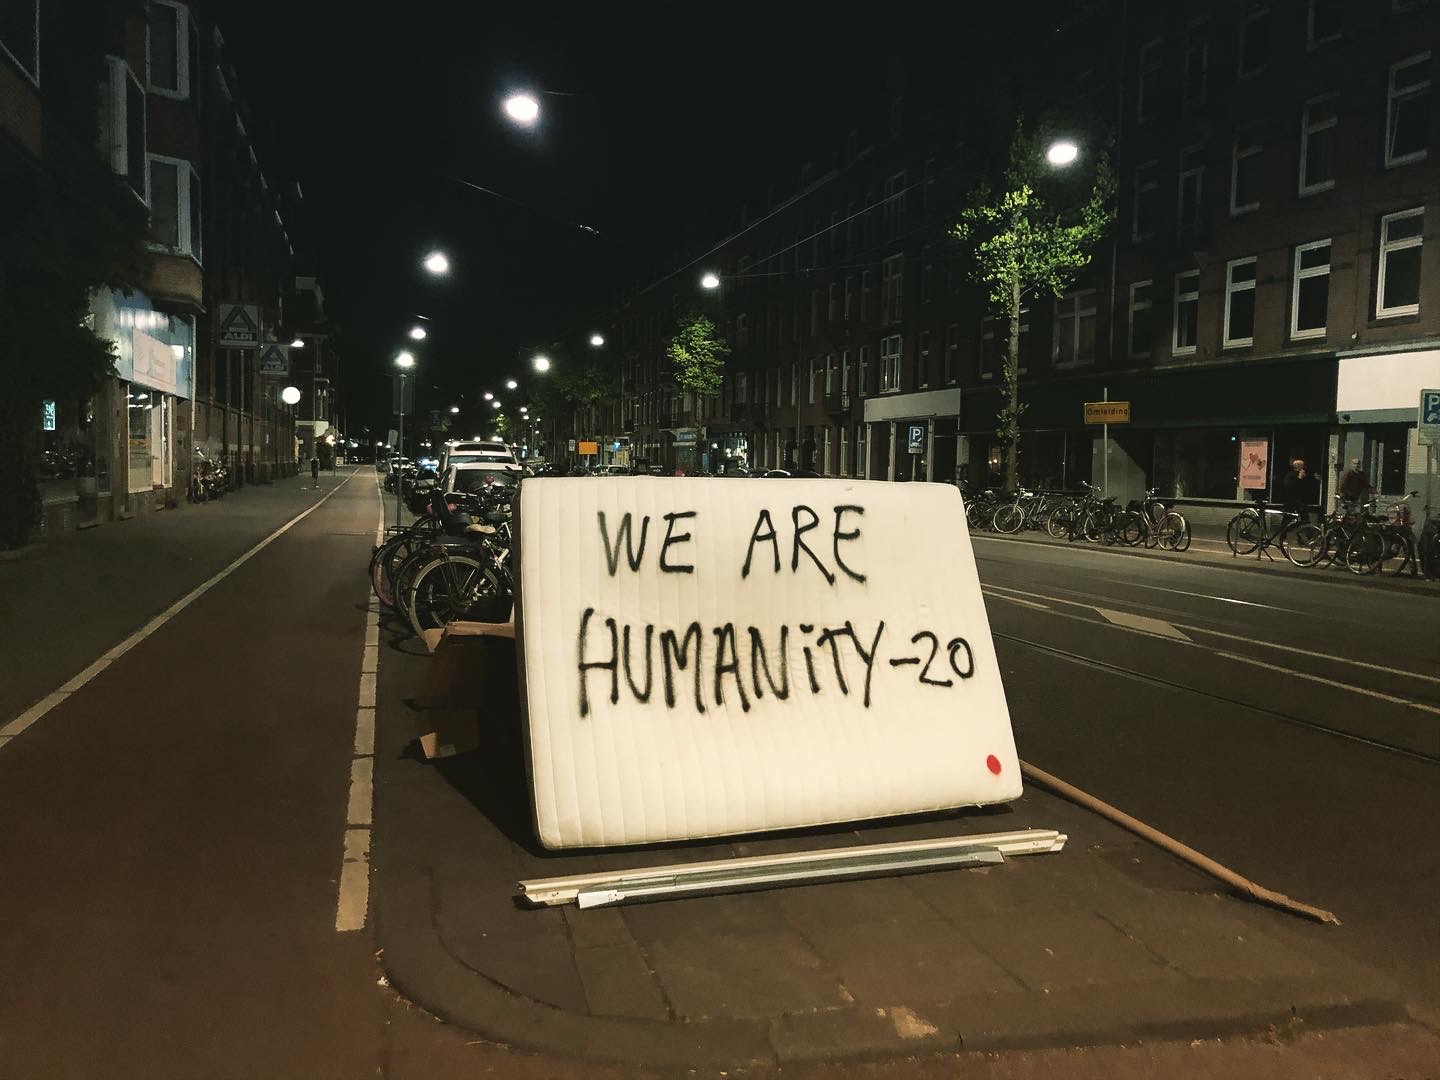 WE ARE
HUMANiTY-20
ALDI
ALDI
Omleiding
P
P